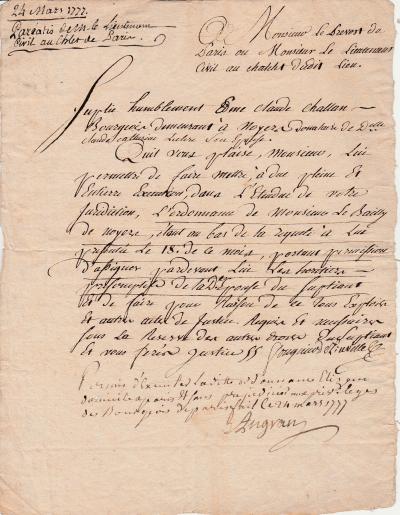 24 Mars 1777.
Pareatis de M. le Lieutenant
Civil au Chlet de Paris.
A Monsieur le Prevost de
Paris ou Monsieur le Lieutenant
Civil au chatelet dudit Lieu.
Suplie humblement Claude Challon
Bourgeois demeurant à Noyers Donataire de Delle
Claude Catherine son Epouse.
Qu'il vous plaise, Monsieur, Lui
permettre de faire mettre, à due pleine et
Entiere Execution, dans L'Etendue de votre
Juridiction, L'ordonnance de Monsieur Le Bailly
de noyers, étant au bas de la requete à Lui
presentée Le 18. de ce mois, portant permission
d'assigner pardevant Lui Les heritiers
presomptifs de la de Epouse du supliant
et de faire pour Raison de ce tous Exploits
et autres actes de Justice Requis et necessaires
sous La Reserve des autres droits du supliant
et vous ferez Justice
Permis d'Executer laditte ordonnance
domicile à paris et sans prejudice aux privileges
des Bourgeois de paris fait ce 24 mars 1777
Angran